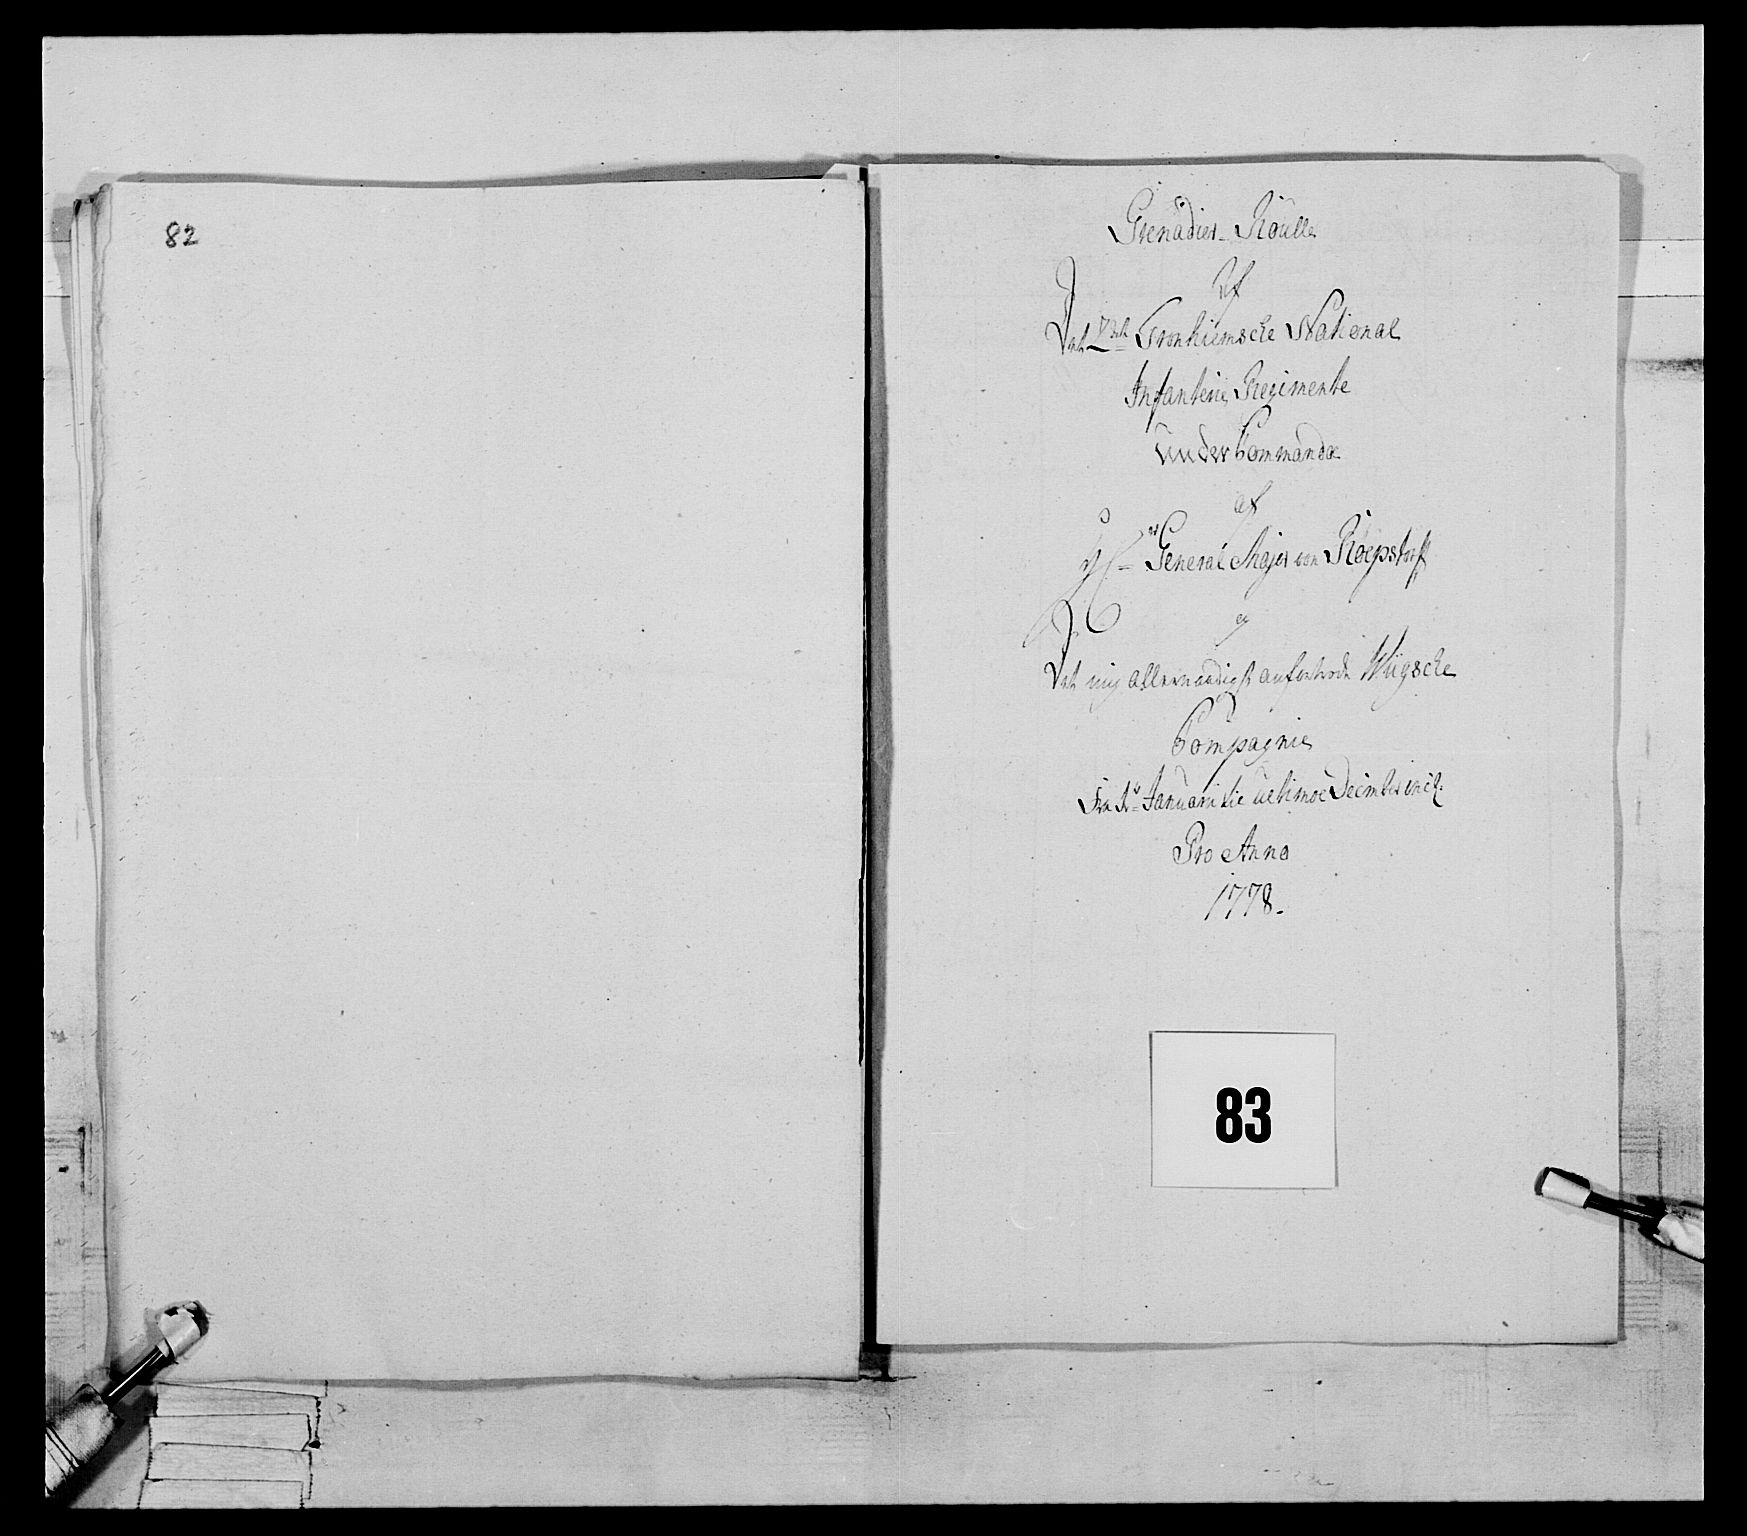 82
Grenadier-Roulle
Af
Det 2de Tronhiemsche National
Infanterie Regimente
under Commando
af
Hr General Major von Röepstorff
og
Det mig allernaadigst anfortrode Wügsche
Compagnie
Fra 1te Januari til ultimo December incl.
Pro Anno
1778.
83